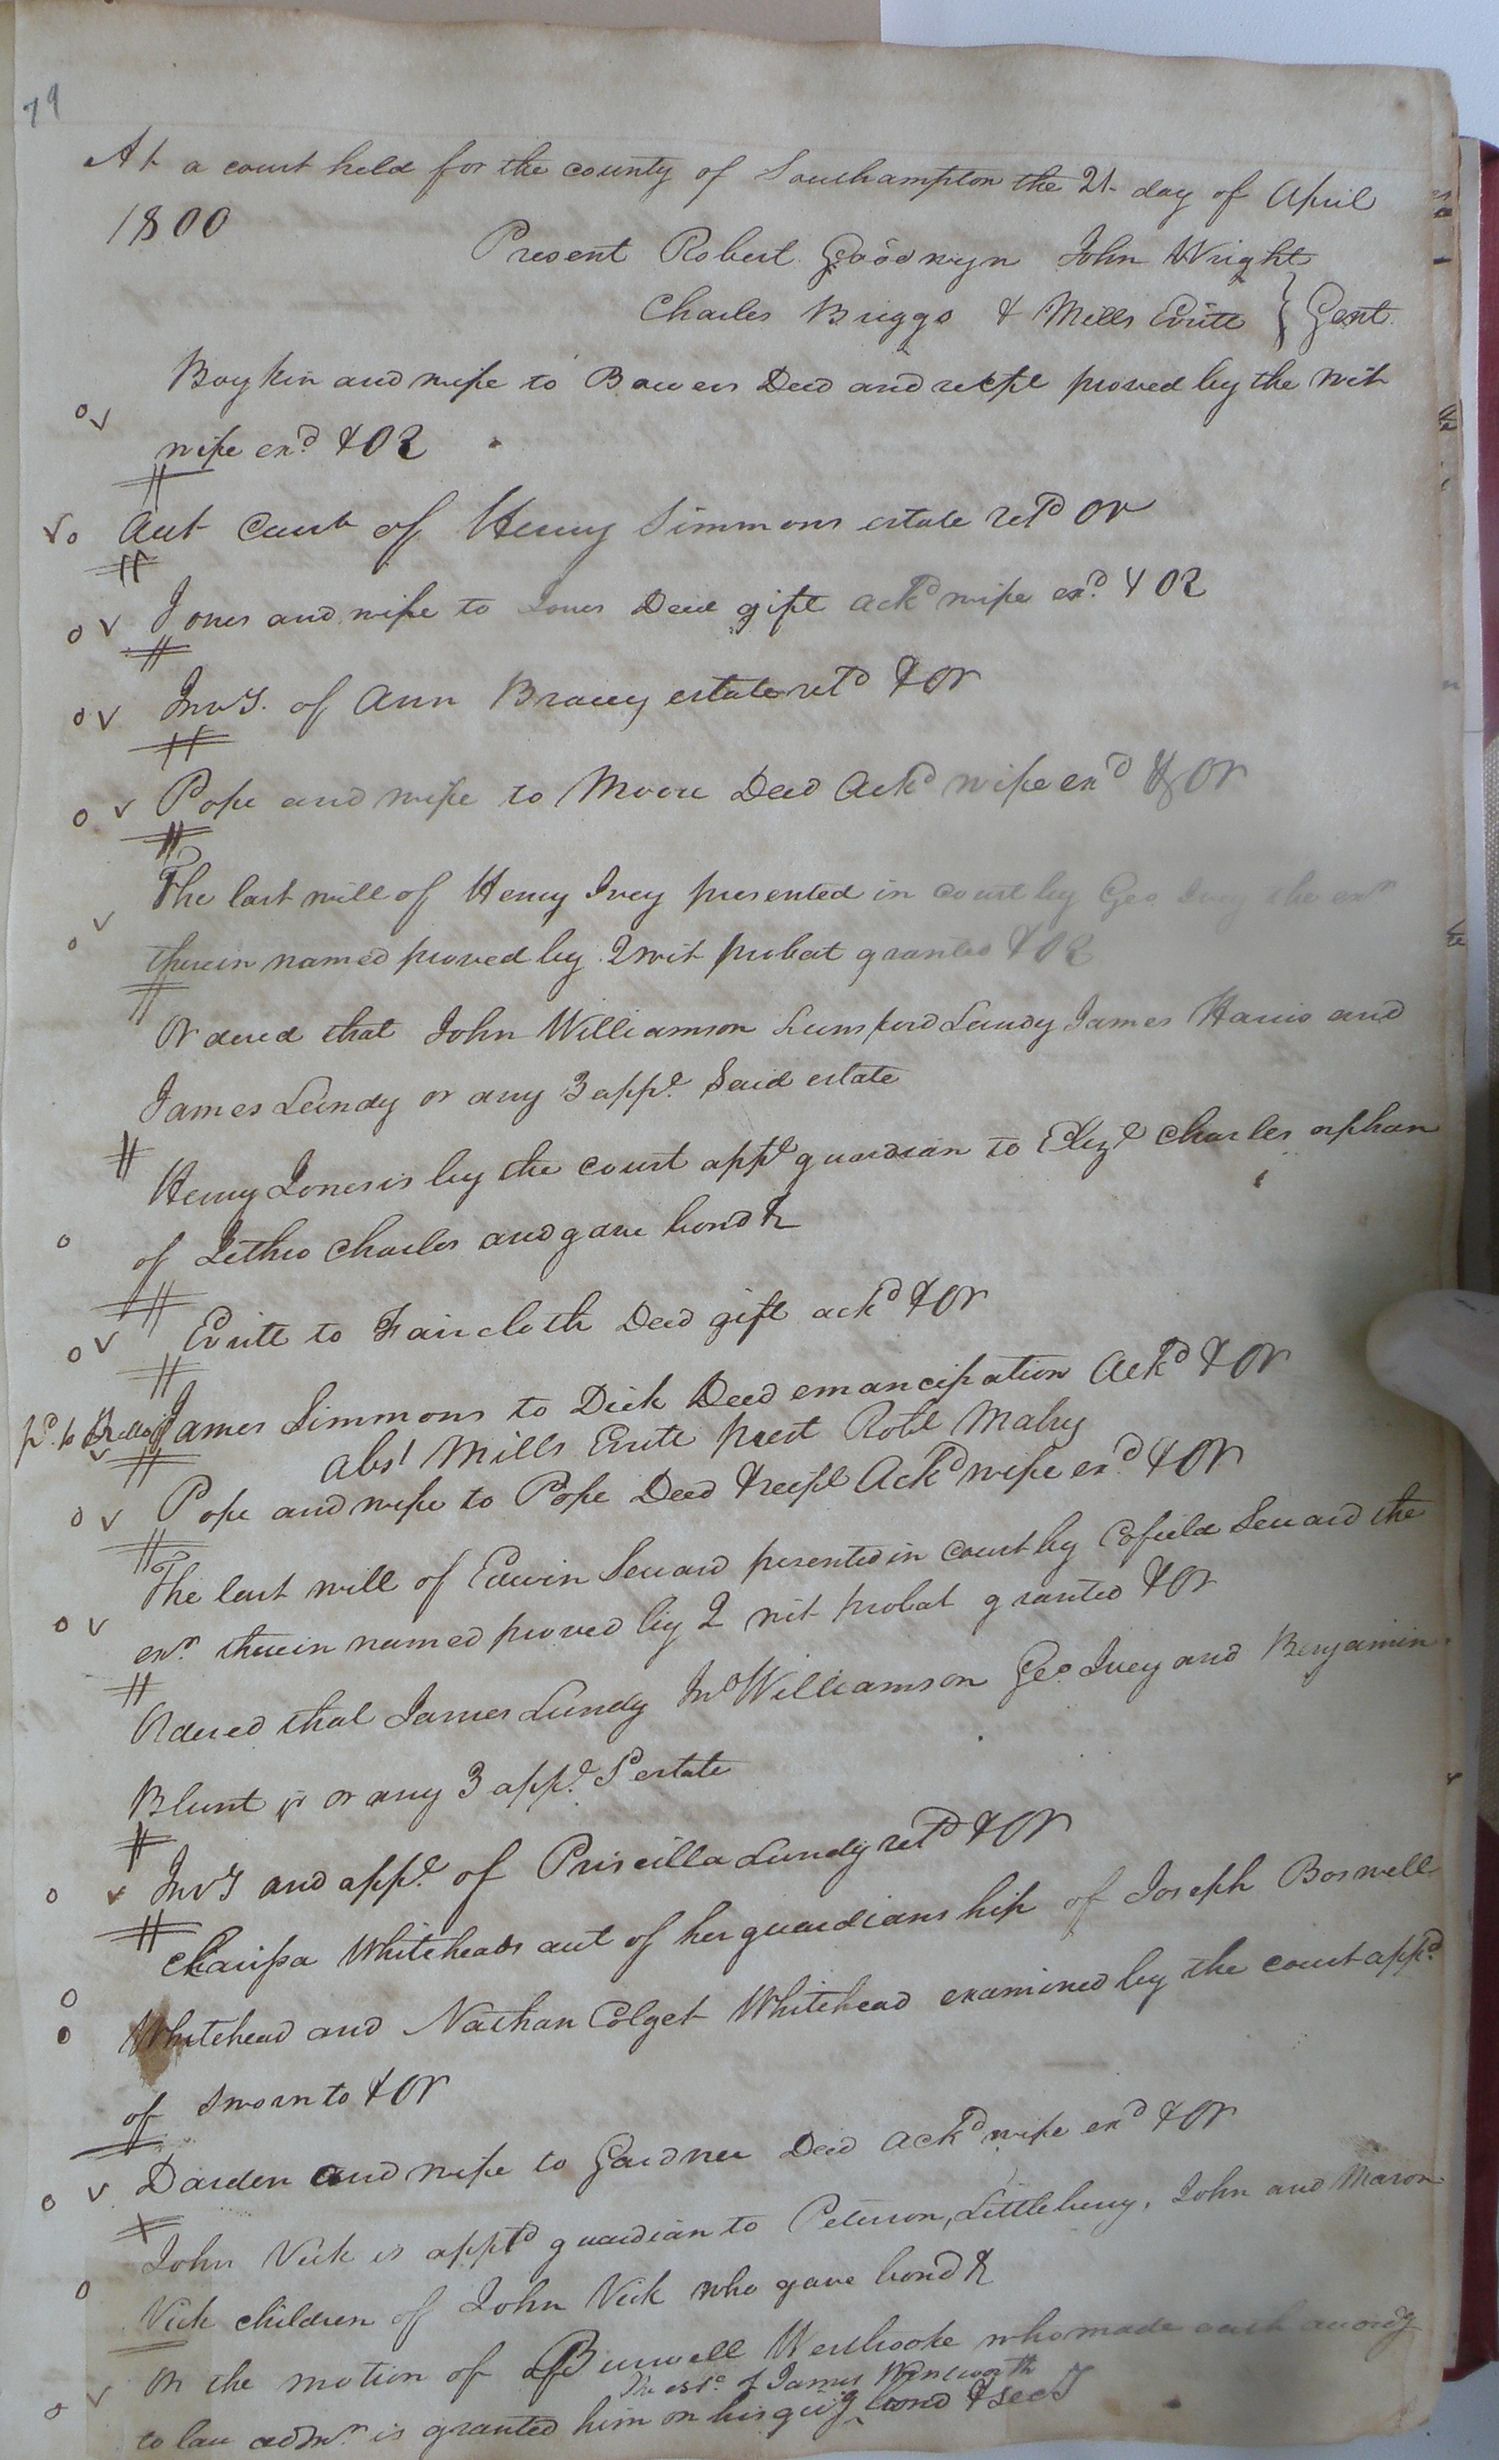 79
At a court held for the county of Southampton the 21 day of April
1800
Present Robert Goodwyn John Wright
Charles Briggs & Mills Evritt } Gent.
Boykin and wife to Bowers Deed and recpt proved by the wit
wife exd & OR
Aut Curt of Henry Simmons estate retd OR
Jones and wife to Jones Deed gift ackd wife exd & OR
Invy. of Ann Bracey estate retd & OR
Pope and wife to Moore Deed Ackd wife exd & OR
The last will of Henry Ivey presented in court by Geo Ivey the exr
therein named proved by 2 wit probat granted & OR
Ordered that John Williamson Lunsford Lundy James Harris and
James Lundy or any 3 appe. Said estate
Henry Jones is by the court appd guardian to Eliza Charles orphan
of Lethro Charles and gave bond &
Evritt to Faircloth Deed gift ackd & OR
James Simmons to Dick Deed emancipation Ackd & OR
abst Mills Evritt prest Robt Mabry
Pope and wife to Pope Deed & recpt Ackd wife exd & OR
The last will of Edwin Seward presented in court by Cofield Seward the
exr. therein named proved by 2 wit probat granted & OR
Ordered that James Lundy Jno Williamson Geo. Ivey and Benjamin
Blunt jr or any 3 appe. Sd estate
Invy and appe. of Priscilla Lundy retd & OR
Whiteheads aut of her guardianship of Joseph Boswell
Whitehead and Nathan Colget Whitehead examined by the court appd
of sworn to & OR
Darden and wife to Gardner Deed ackd wife exd & OR
John Vick is apptd guardian to Peterson, Littlebury, John and Mason
Vick children of John Vick who gave bond &
On the motion of Burwell Westbrooke who made oath accordg
The este. of James Wentworth
to law admr. is granted him on his givg bond & secy